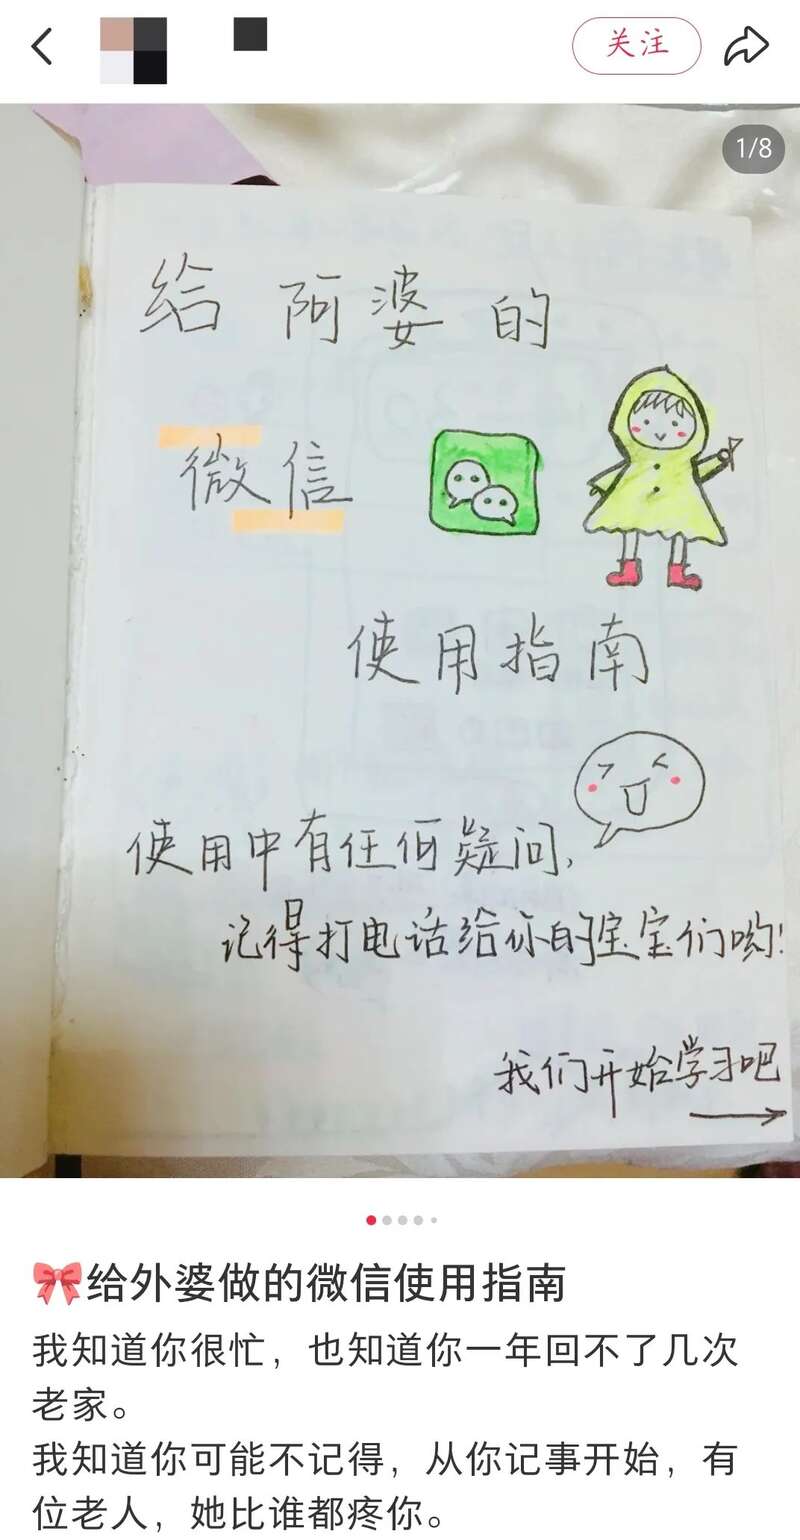 关注
1/8
给阿婆的
微信
使用指南
使用中有任何疑问,
记得打电话给你的宝宝们哟!
我们开始学习吧
🎀给外婆做的微信使用指南
我知道你很忙，也知道你一年回不了几次
老家。
我知道你可能不记得，从你记事开始，有
位老人，她比谁都疼你。